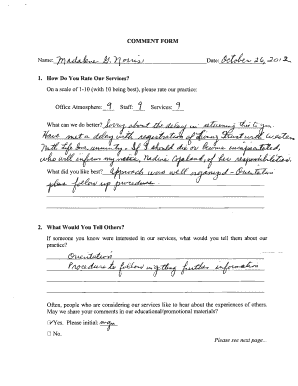 COMMENT FORM
Name: Madalene G. Norris Date: October 26, 2012
1. How Do You Rate Our Services?
On a scale of 1-10 (with 10 being best), please rate our practice:
Office Atmosphere: 9 Staff: 9 Services: 9
What can we do better? Sorry about the delay in returning this to you.
Have met a delay with registration of Living Trust with
Life Community. If I should die or become incapacitated,
who will inform my niece, Nadine Copeland, of her responsibilities.
What did you like best? Approach was well organized - Orientation
plus follow up procedure.
2. What Would You Tell Others?
If someone you knew were interested in our services, what would you tell them about our
practice?
Orientation
Procedure to follow in getting further information
Often, people who are considering our services like to hear about the experiences of others.
May we share your comments in our educational/promotional materials?
Yes. Please initial: mgn
No.
Please see next page...